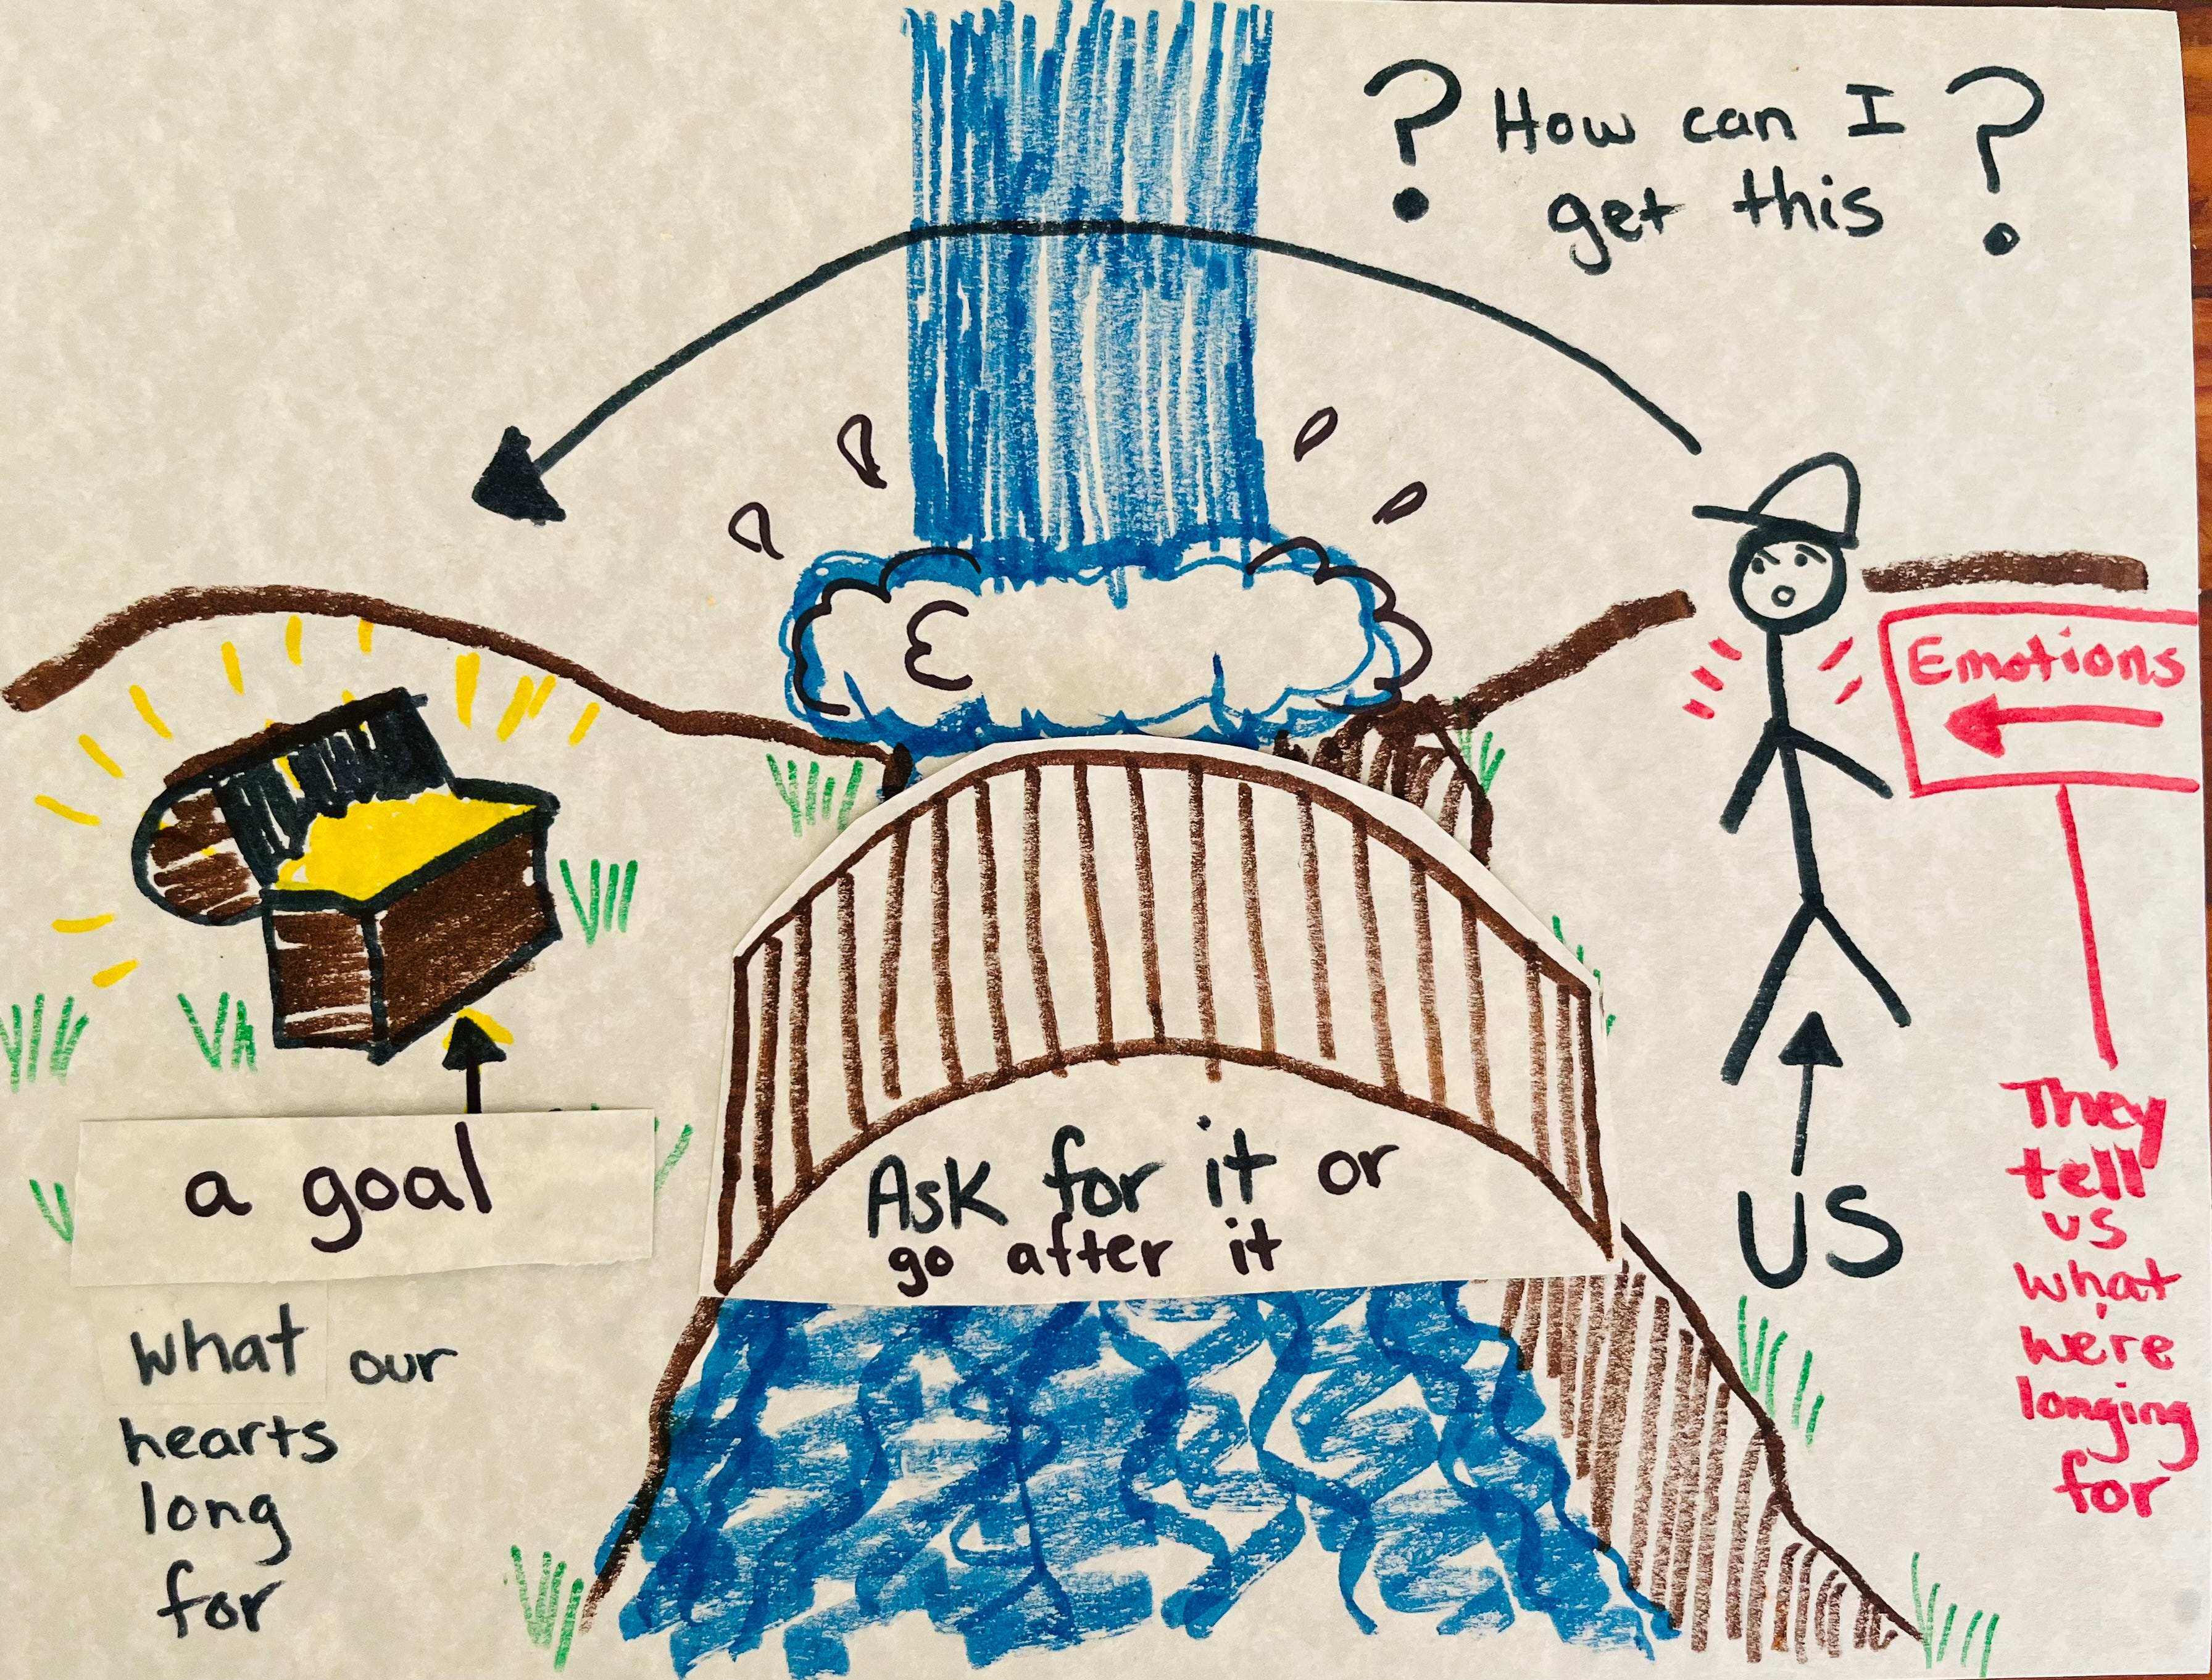 ? How can I ?
get this
Emotions
a goal
what our
hearts
long
for
Ask for it or
go after it
US
They
tell
us
what
we're
longing
for